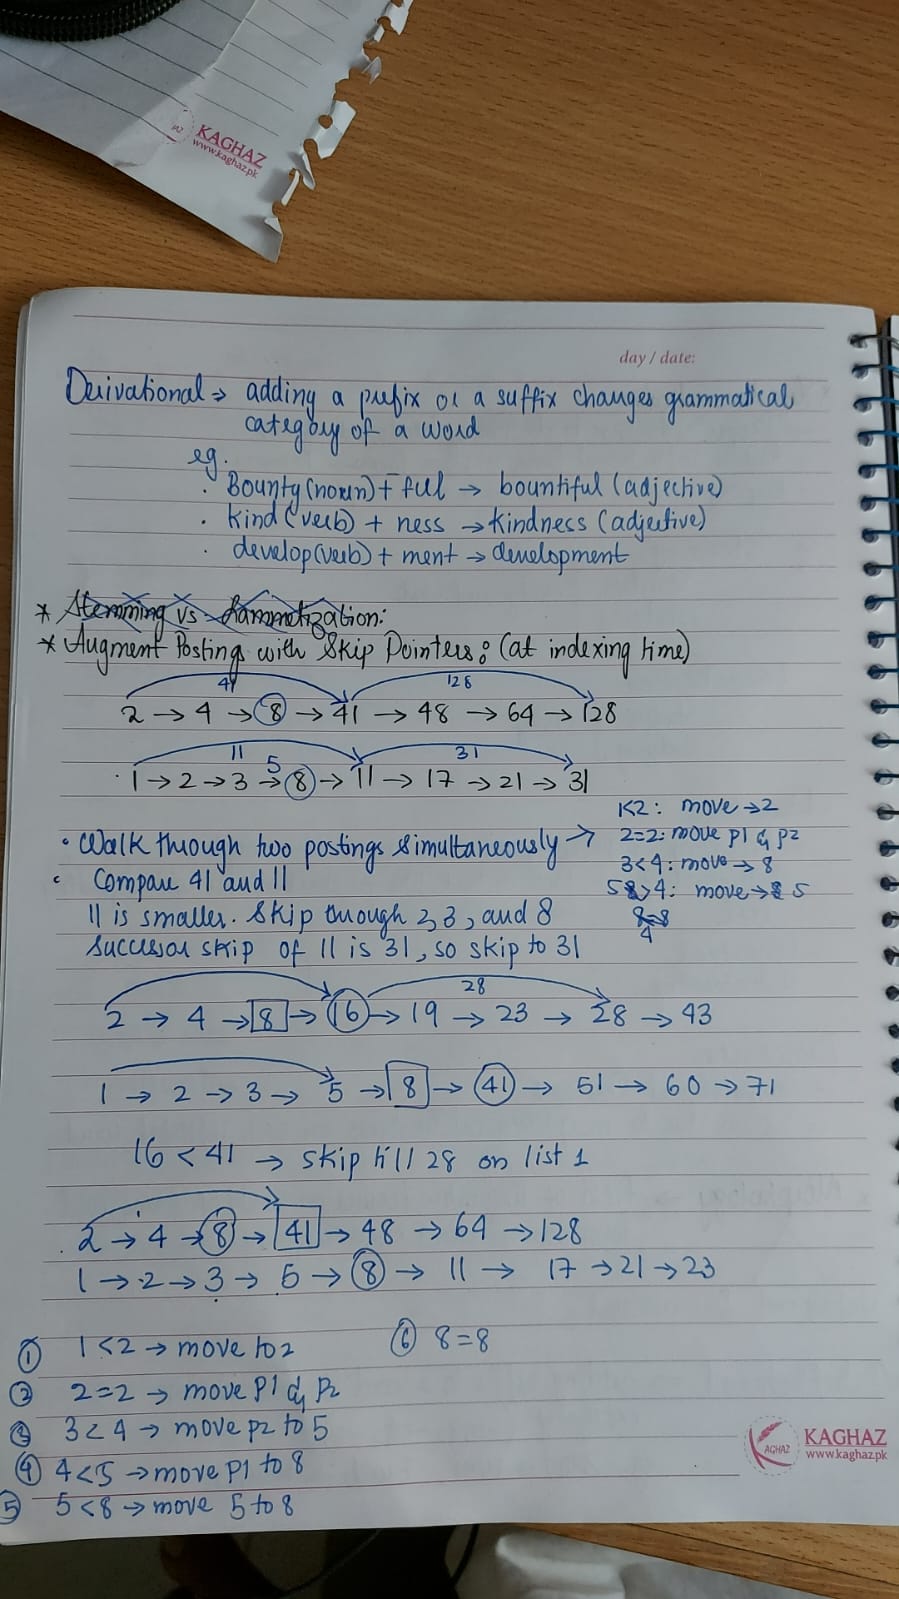 KAGHAZ
www.kaghaz.pk
day / date:
Derivational → adding a prefix or a suffix changes grammatical
category of a word
eg.
· Bounty(noun) + ful → bountiful (adjective)
· Kind (verb) + ness → Kindness (adjective)
· develop(verb) + ment → development
* Stemming vs Lammetization:
* Augment Posting with Skip Pointers: (at indexing time)
41 128
2 → 4 → 8 → 41 → 48 → 64 → 128
11 5 31
1 → 2 → 3 → 8 → 11 → 17 → 21 → 31
1<2: move → 2
· Walk through two postings simultaneously → 2=2: move p1 & p2
3<4: move → 8
· Compare 41 and 11 5>4: move → 5
11 is smaller. Skip through 2,3, and 8 8=8
4
Successor skip of 11 is 31, so skip to 31
28
2 → 4 → 8 → 16 → 19 → 23 → 28 → 43
1 → 2 → 3 → 5 → 8 → 41 → 51 → 60 → 71
16 < 41 → skip till 28 on list 1
2 → 4 → 8 → 41 → 48 → 64 → 128
1 → 2 → 3 → 5 → 8 → 11 → 17 → 21 → 23
① 1 < 2 → move to 2 ⑥ 8 = 8
② 2 = 2 → move P1 & P2
③ 3 < 4 → move p2 to 5
④ 4 < 5 → move P1 to 8
⑤ 5 < 8 → move 5 to 8
AGHAZ
KAGHAZ
www.kaghaz.pk